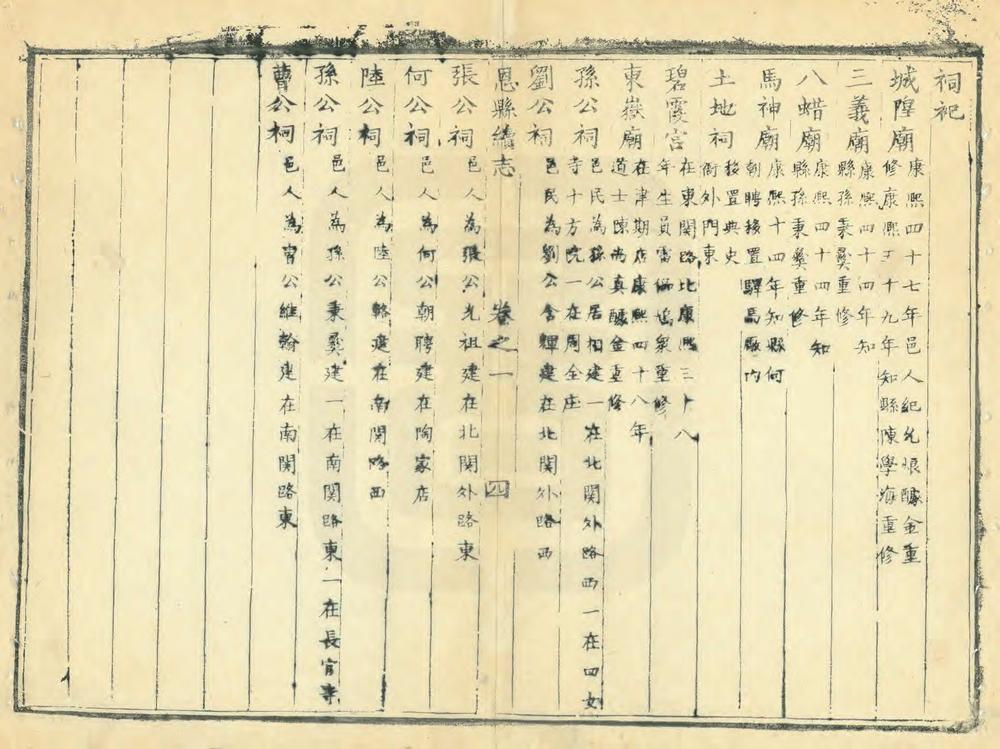 祠祀
城隍廟 康熙四十七年邑人紀允恨醵金重
修康熙五十九年知縣陳學海重修
三義廟 康熙四十四年知
縣孫秉彝重修
八蜡廟 康熙四十四年知
縣孫秉彝重修
馬神廟 康熙十四年知縣何
朝聘移置驛馬廠內
土地祠 移置典史
衙外門東
碧霞宮 在東関路北康熙三十八
年生員雷 鳩衆重修
東嶽廟 在津期店康熙四十八年
道士陳尚真醵金重修
孫公祠 邑民為孫公居相建一在北関外路西一在四女
寺十方院一在周全庄
劉公祠 邑民為劉公含輝建在北関外路西
恩縣續志 卷之一 四
張公祠 邑人為張公光祖建在北関外路東
何公祠 邑人為何公朝聘建在陶家店
陸公祠 邑人為陸公輅建在南関路西
孫公祠 邑人為孫公秉彝建一在南関路東一在長官寺
曹公祠 邑人為曹公維翰建在南関路東